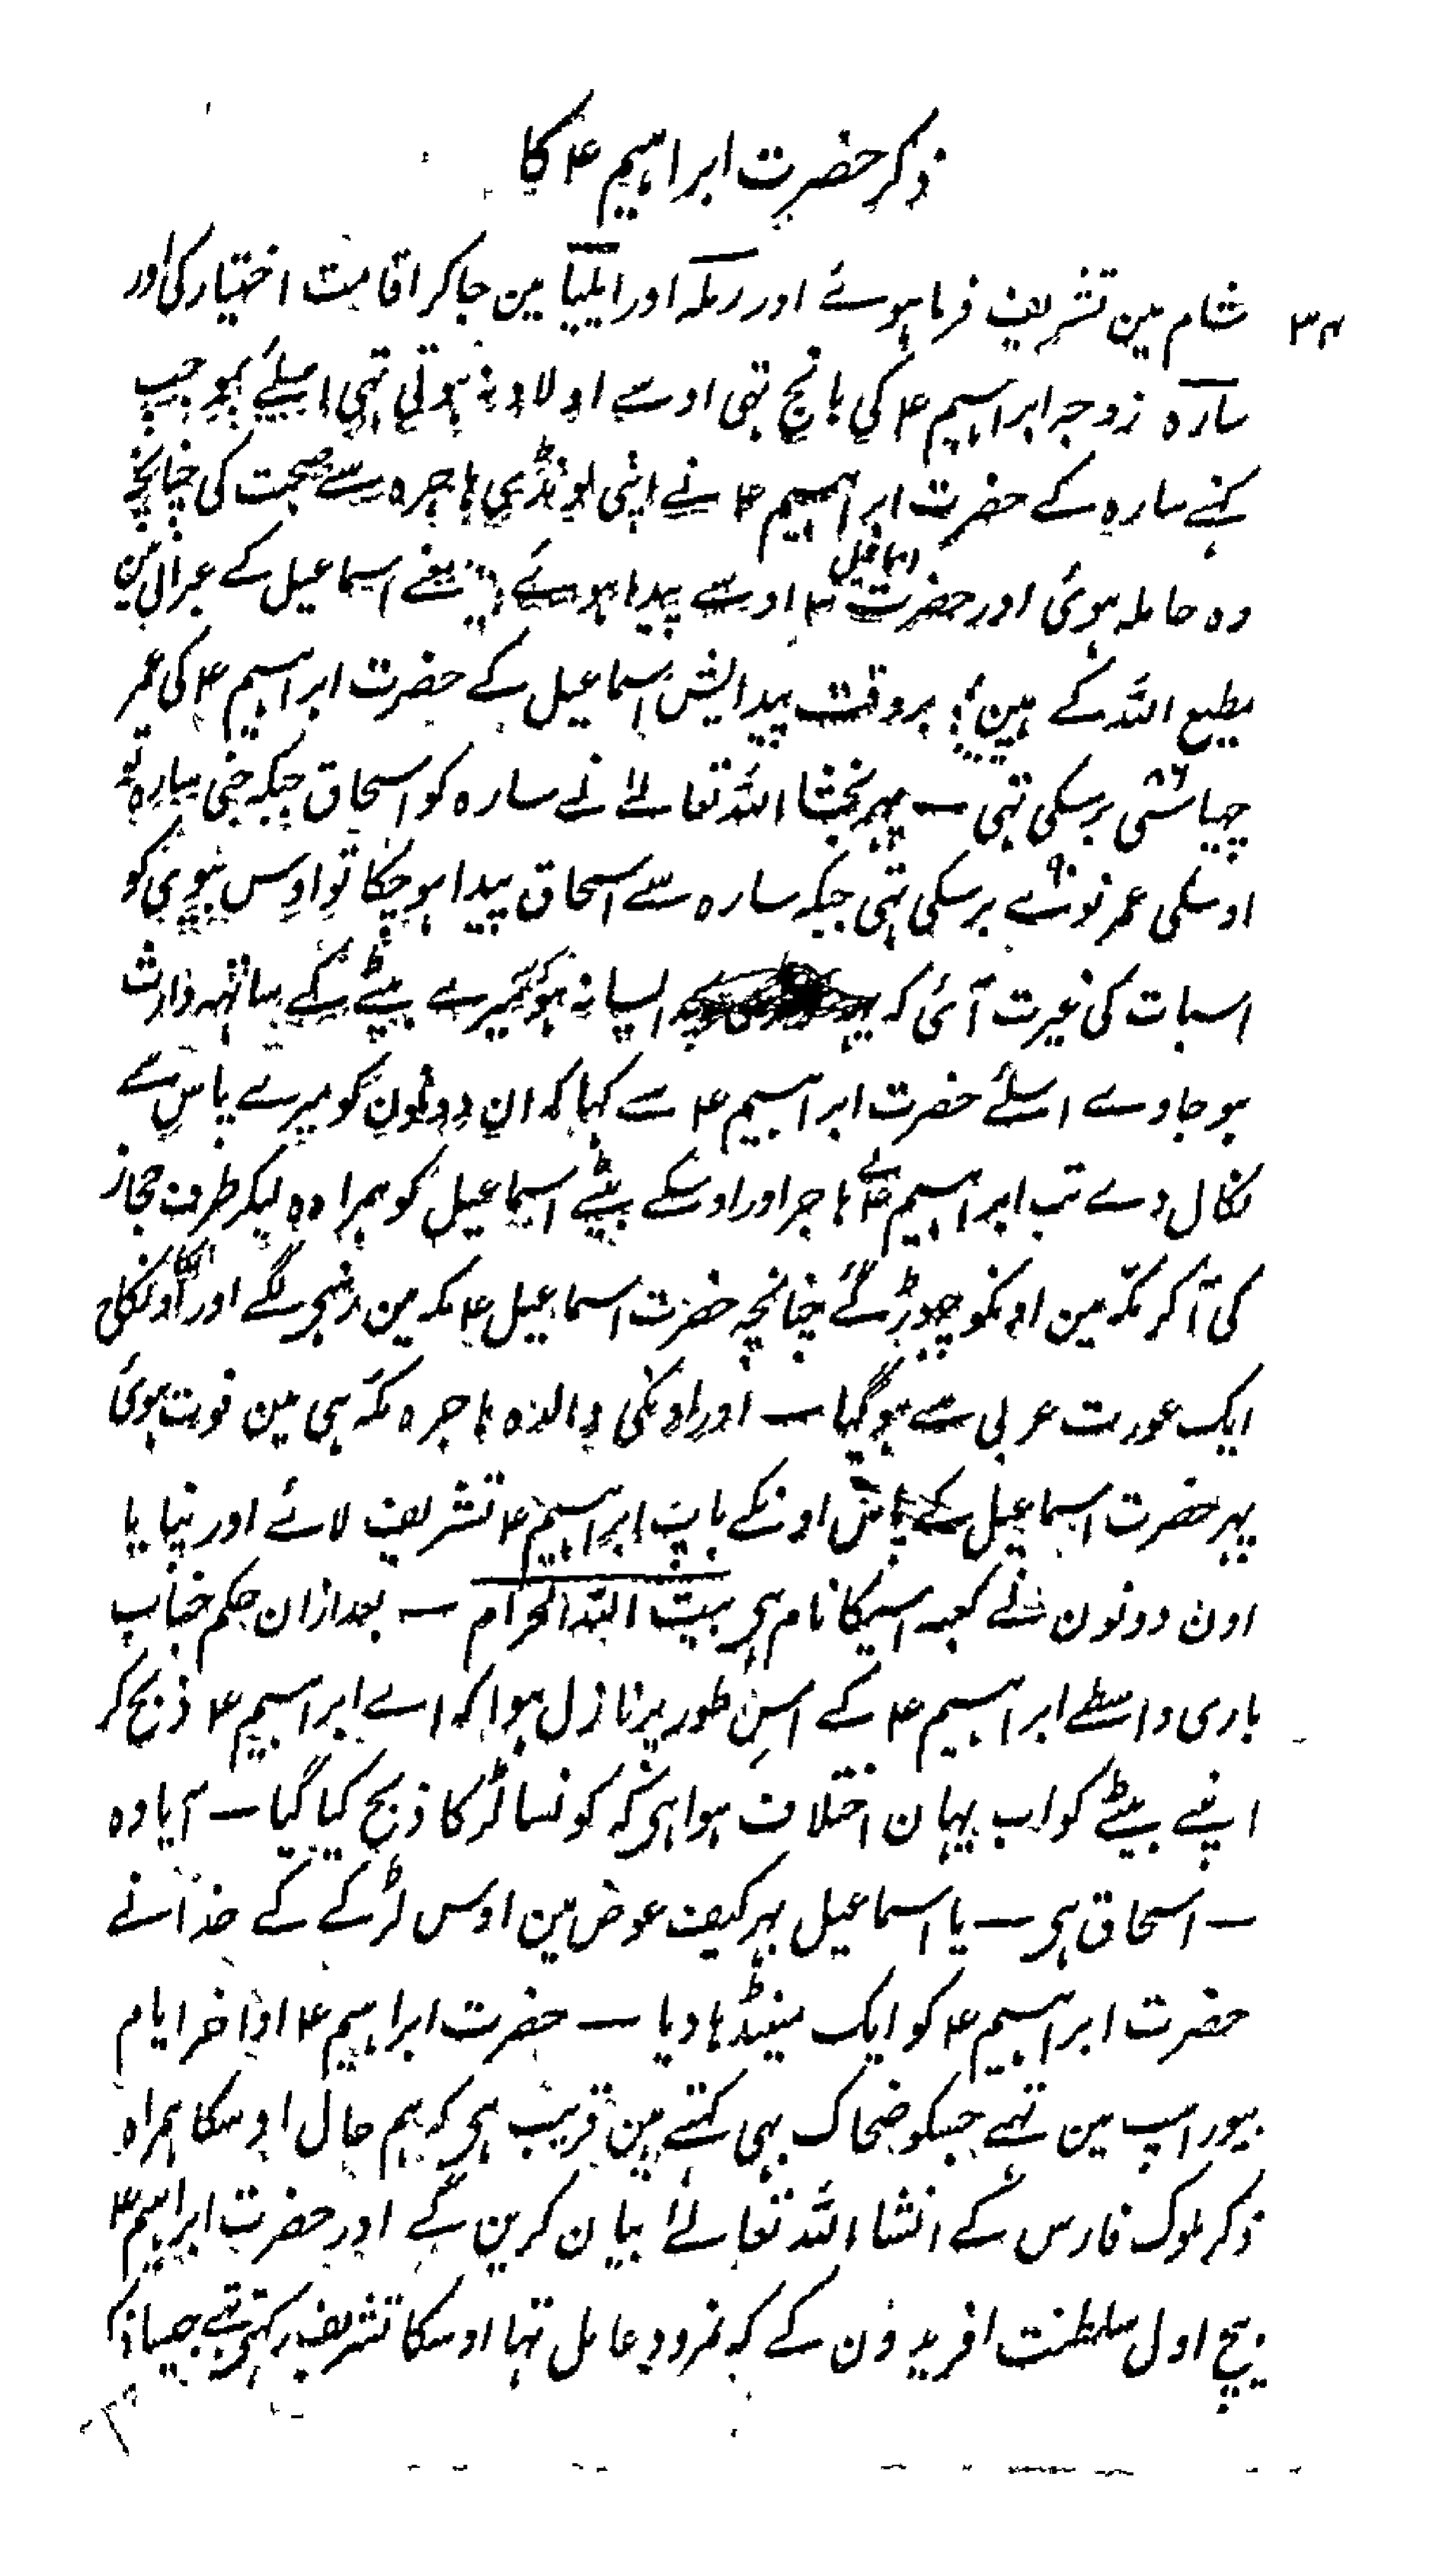 ذکر حضرت ابراہیم ۴ کا
۳۴
شام مین تشریف فرما ہوئے اور رملہ اور ایلیا مین جاکر اقامت اختیار کی اور
سارہ زوجہ ابراہیم ۴ کی بانج تہی اوسے اولاد نہ ہوتی تہی اسلئے بموجب
کہنے سارہ کے حضرت ابراہیم ۴ نے اپنی لونڈی ہاجرہ سے صحبت کی چنانچہ
وہ حاملہ ہوئ اور حضرت اسماعیل ۴ اوسے پیدا ہوئے معنے اسماعیل کے عبرانی مین
مطیع اللہ کے ہین بروقت پیدایش اسماعیل کے حضرت ابراہیم ۴ کی عمر
چہیاسی ۸۶ برسکی تہی — پہر بخشا اللہ تعالے نے سارہ کو اسحاق جبکہ جنی سارہ تو
اوسکی عمر نوے ۹۰ برسکی تہی جبکہ سارہ سے اسحاق پیدا ہو چکا تو اوس بیوی کو
اسبات کی غیرت آئ کہ ایسا نہ ہو کہ میرے بیٹے کے ساتہہ وارث
ہو جاوے اسلئے حضرت ابراہیم ۴ سے کہا کہ ان دونون کو میرے پاس سے
نکال دے تب ابراہیم ۴ نے ہاجر اور اوسکے بیٹے اسماعیل کو ہمراہ لیکر طرف حجاز
کی آکر مکہ مین اونکو چہوڑ گئے چنانچہ حضرت اسماعیل ۴ مکہ مین رہنے لگے اور اونکا نکاح
ایک عورت عربی سے ہو گیا — اور اونکی والدہ ہاجرہ مکہ ہی مین فوت ہوئ
پہر حضرت اسماعیل کے پاس اونکے باپ ابراہیم ۴ تشریف لائے اور بنایا
اون دونون نے کعبہ اسیکا نام ہی بیت اللہ الحرام — بعد ازان حکم جناب
باری واسطے ابراہیم ۴ کے اس طور پر نازل ہوا کہ اے ابراہیم ۴ ذبح کر
اپنے بیٹے کو اب یہان اختلاف ہوا ہی کہ کونسا لڑکا ذبح کیا گیا — آیا وہ
— اسحاق ہی — یا اسماعیل بہر کیف عوض مین اوس لڑکے کے خدا نے
حضرت ابراہیم ۴ کو ایک مینڈہا دیا — حضرت ابراہیم ۴ اواخر ایام
بیوراسپ مین تہے جسکو ضحاک بہی کہتے ہین قریب ہی کہ ہم حال اوسکا ہمراہ
ذکر ملوک فارس کے انشا اللہ تعالے بیان کرین گے اور حضرت ابراہیم ۴
بیچ اول سلطنت افریدون کے کہ نمرود عامل تہا اوسکا تشریف رکہتے تہے جیسا ذکر